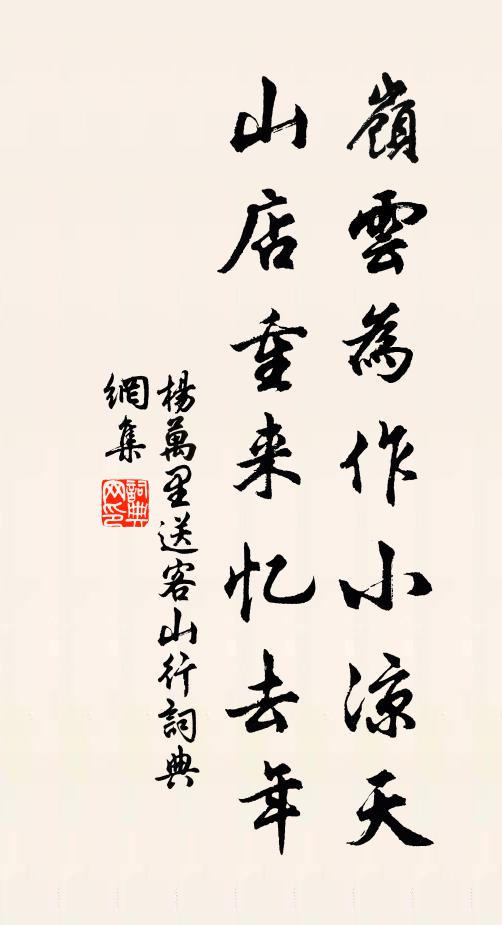 嶺雲為作小涼天
山店重来忆去年
楊萬里送客山行詞典
網集
詞典網印